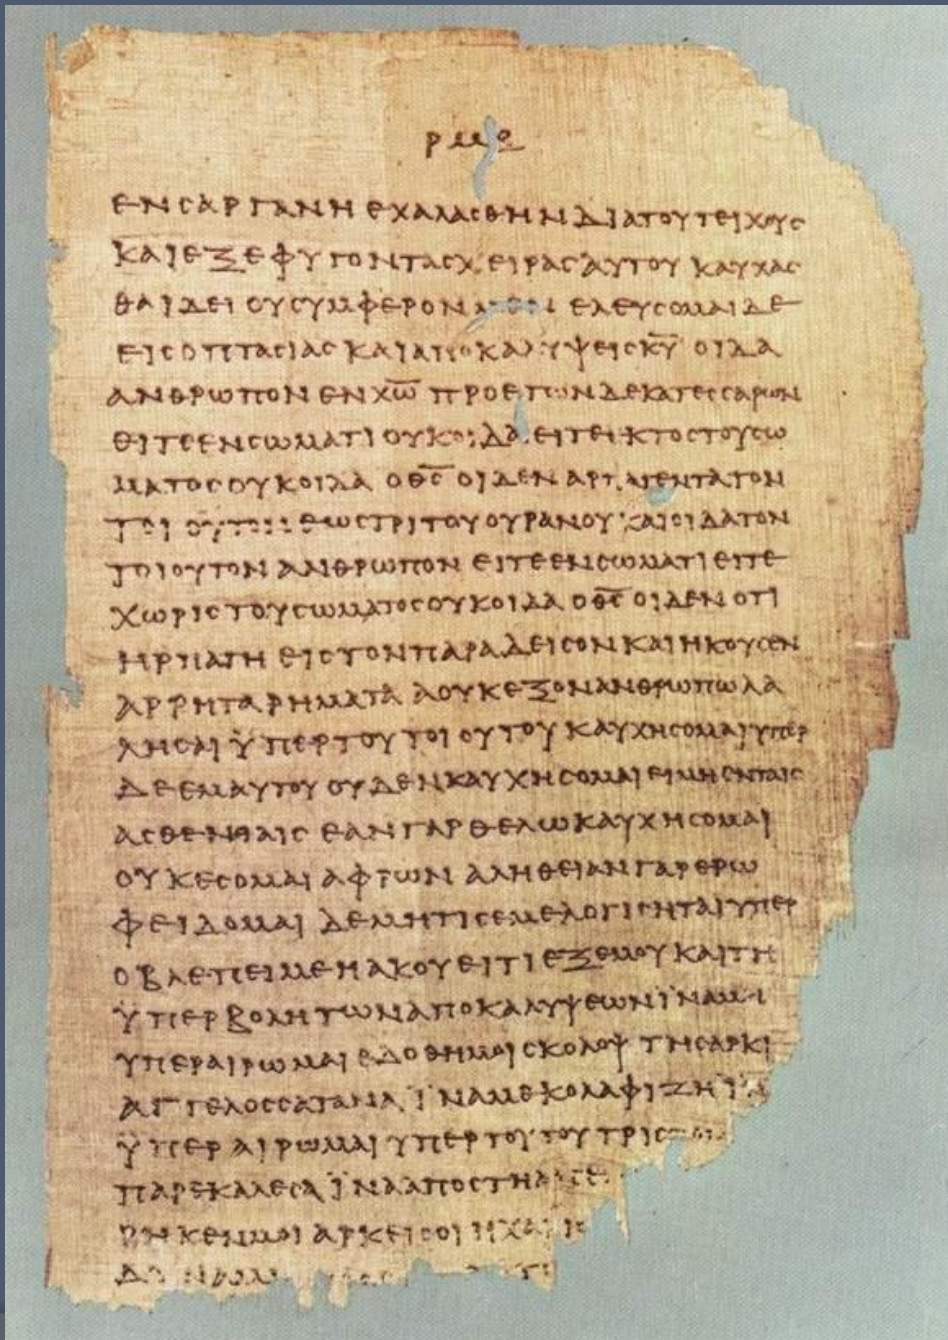 ρμε
ΕΝ ϹΑΡΓΑΝΗ ΕΧΑΛΑϹΘΗΝ ΔΙΑ ΤΟΥ ΤΕΙΧΟΥϹ
ΚΑΙ ΕΞΕΦΥΓΟΝ ΤΑϹ ΧΕΙΡΑϹ ΑΥΤΟΥ ΚΑΥΧΑϹ
ΘΑΙ ΔΕΙ ΟΥ ϹΥΜΦΕΡΟΝ ΕΛΕΥϹΟΜΑΙ ΔΕ
ΕΙϹ ΟΠΤΑϹΙΑϹ ΚΑΙ ΑΠΟΚΑΛΥΨΕΙϹ Κ̅Υ̅ ΟΙΔΑ
ΑΝΘΡΩΠΟΝ ΕΝ Χ̅Ω̅ ΠΡΟ ΕΤΩΝ ΔΕΚΑΤΕϹϹΑΡΩΝ
ΕΙΤΕ ΕΝ ϹΩΜΑΤΙ ΟΥΚ ΟΙΔΑ ΕΙΤΕ ΕΚΤΟϹ ΤΟΥ ϹΩ
ΜΑΤΟϹ ΟΥΚ ΟΙΔΑ Ο Θ̅Ϲ̅ ΟΙΔΕΝ ΑΡΠΑΓΕΝΤΑ ΤΟΝ
ΤΟΙΟΥΤΟΝ ΕΩϹ ΤΡΙΤΟΥ ΟΥΡΑΝΟΥ ΚΑΙ ΟΙΔΑ ΤΟΝ
ΤΟΙΟΥΤΟΝ ΑΝΘΡΩΠΟΝ ΕΙΤΕ ΕΝ ϹΩΜΑΤΙ ΕΙΤΕ
ΧΩΡΙϹ ΤΟΥ ϹΩΜΑΤΟϹ ΟΥΚ ΟΙΔΑ Ο Θ̅Ϲ̅ ΟΙΔΕΝ ΟΤΙ
ΗΡΠΑΓΗ ΕΙϹ ΤΟΝ ΠΑΡΑΔΕΙϹΟΝ ΚΑΙ ΗΚΟΥϹΕΝ
ΑΡΡΗΤΑ ΡΗΜΑΤΑ Α ΟΥΚ ΕΞΟΝ ΑΝΘΡΩΠΩ ΛΑ
ΛΗϹΑΙ ΫΠΕΡ ΤΟΥ ΤΟΙΟΥΤΟΥ ΚΑΥΧΗϹΟΜΑΙ ΥΠΕΡ
ΔΕ ΕΜΑΥΤΟΥ ΟΥΔΕΝ ΚΑΥΧΗϹΟΜΑΙ ΕΙ ΜΗ ΕΝ ΤΑΙϹ
ΑϹΘΕΝΕΙΑΙϹ ΕΑΝ ΓΑΡ ΘΕΛΩ ΚΑΥΧΗϹΟΜΑΙ
ΟΥΚ ΕϹΟΜΑΙ ΑΦΡΩΝ ΑΛΗΘΕΙΑΝ ΓΑΡ ΕΡΩ
ΦΕΙΔΟΜΑΙ ΔΕ ΜΗ ΤΙϹ ΕΜΕ ΛΟΓΙϹΗΤΑΙ ΥΠΕΡ
Ο ΒΛΕΠΕΙ ΜΕ Η ΑΚΟΥΕΙ ΤΙ ΕΞ ΕΜΟΥ ΚΑΙ ΤΗ
ΫΠΕΡΒΟΛΗ ΤΩΝ ΑΠΟΚΑΛΥΨΕΩΝ ΪΝΑ ΜΗ
ΥΠΕΡΑΙΡΩΜΑΙ ΕΔΟΘΗ ΜΟΙ ϹΚΟΛΟΨ ΤΗ ϹΑΡΚΙ
ΑΓΓΕΛΟϹ ϹΑΤΑΝΑ ΪΝΑ ΜΕ ΚΟΛΑΦΙΖΗ ΪΝΑ
ΫΠΕΡΑΙΡΩΜΑΙ ΥΠΕΡ ΤΟΥΤΟΥ ΤΡΙϹ
ΠΑΡΕΚΑΛΕϹΑ ΪΝΑ ΑΠΟϹΤΗ
ΡΗΚΕΝ ΜΟΙ ΑΡΚΕΙ ϹΟΙ Η ΧΑΡΙϹ